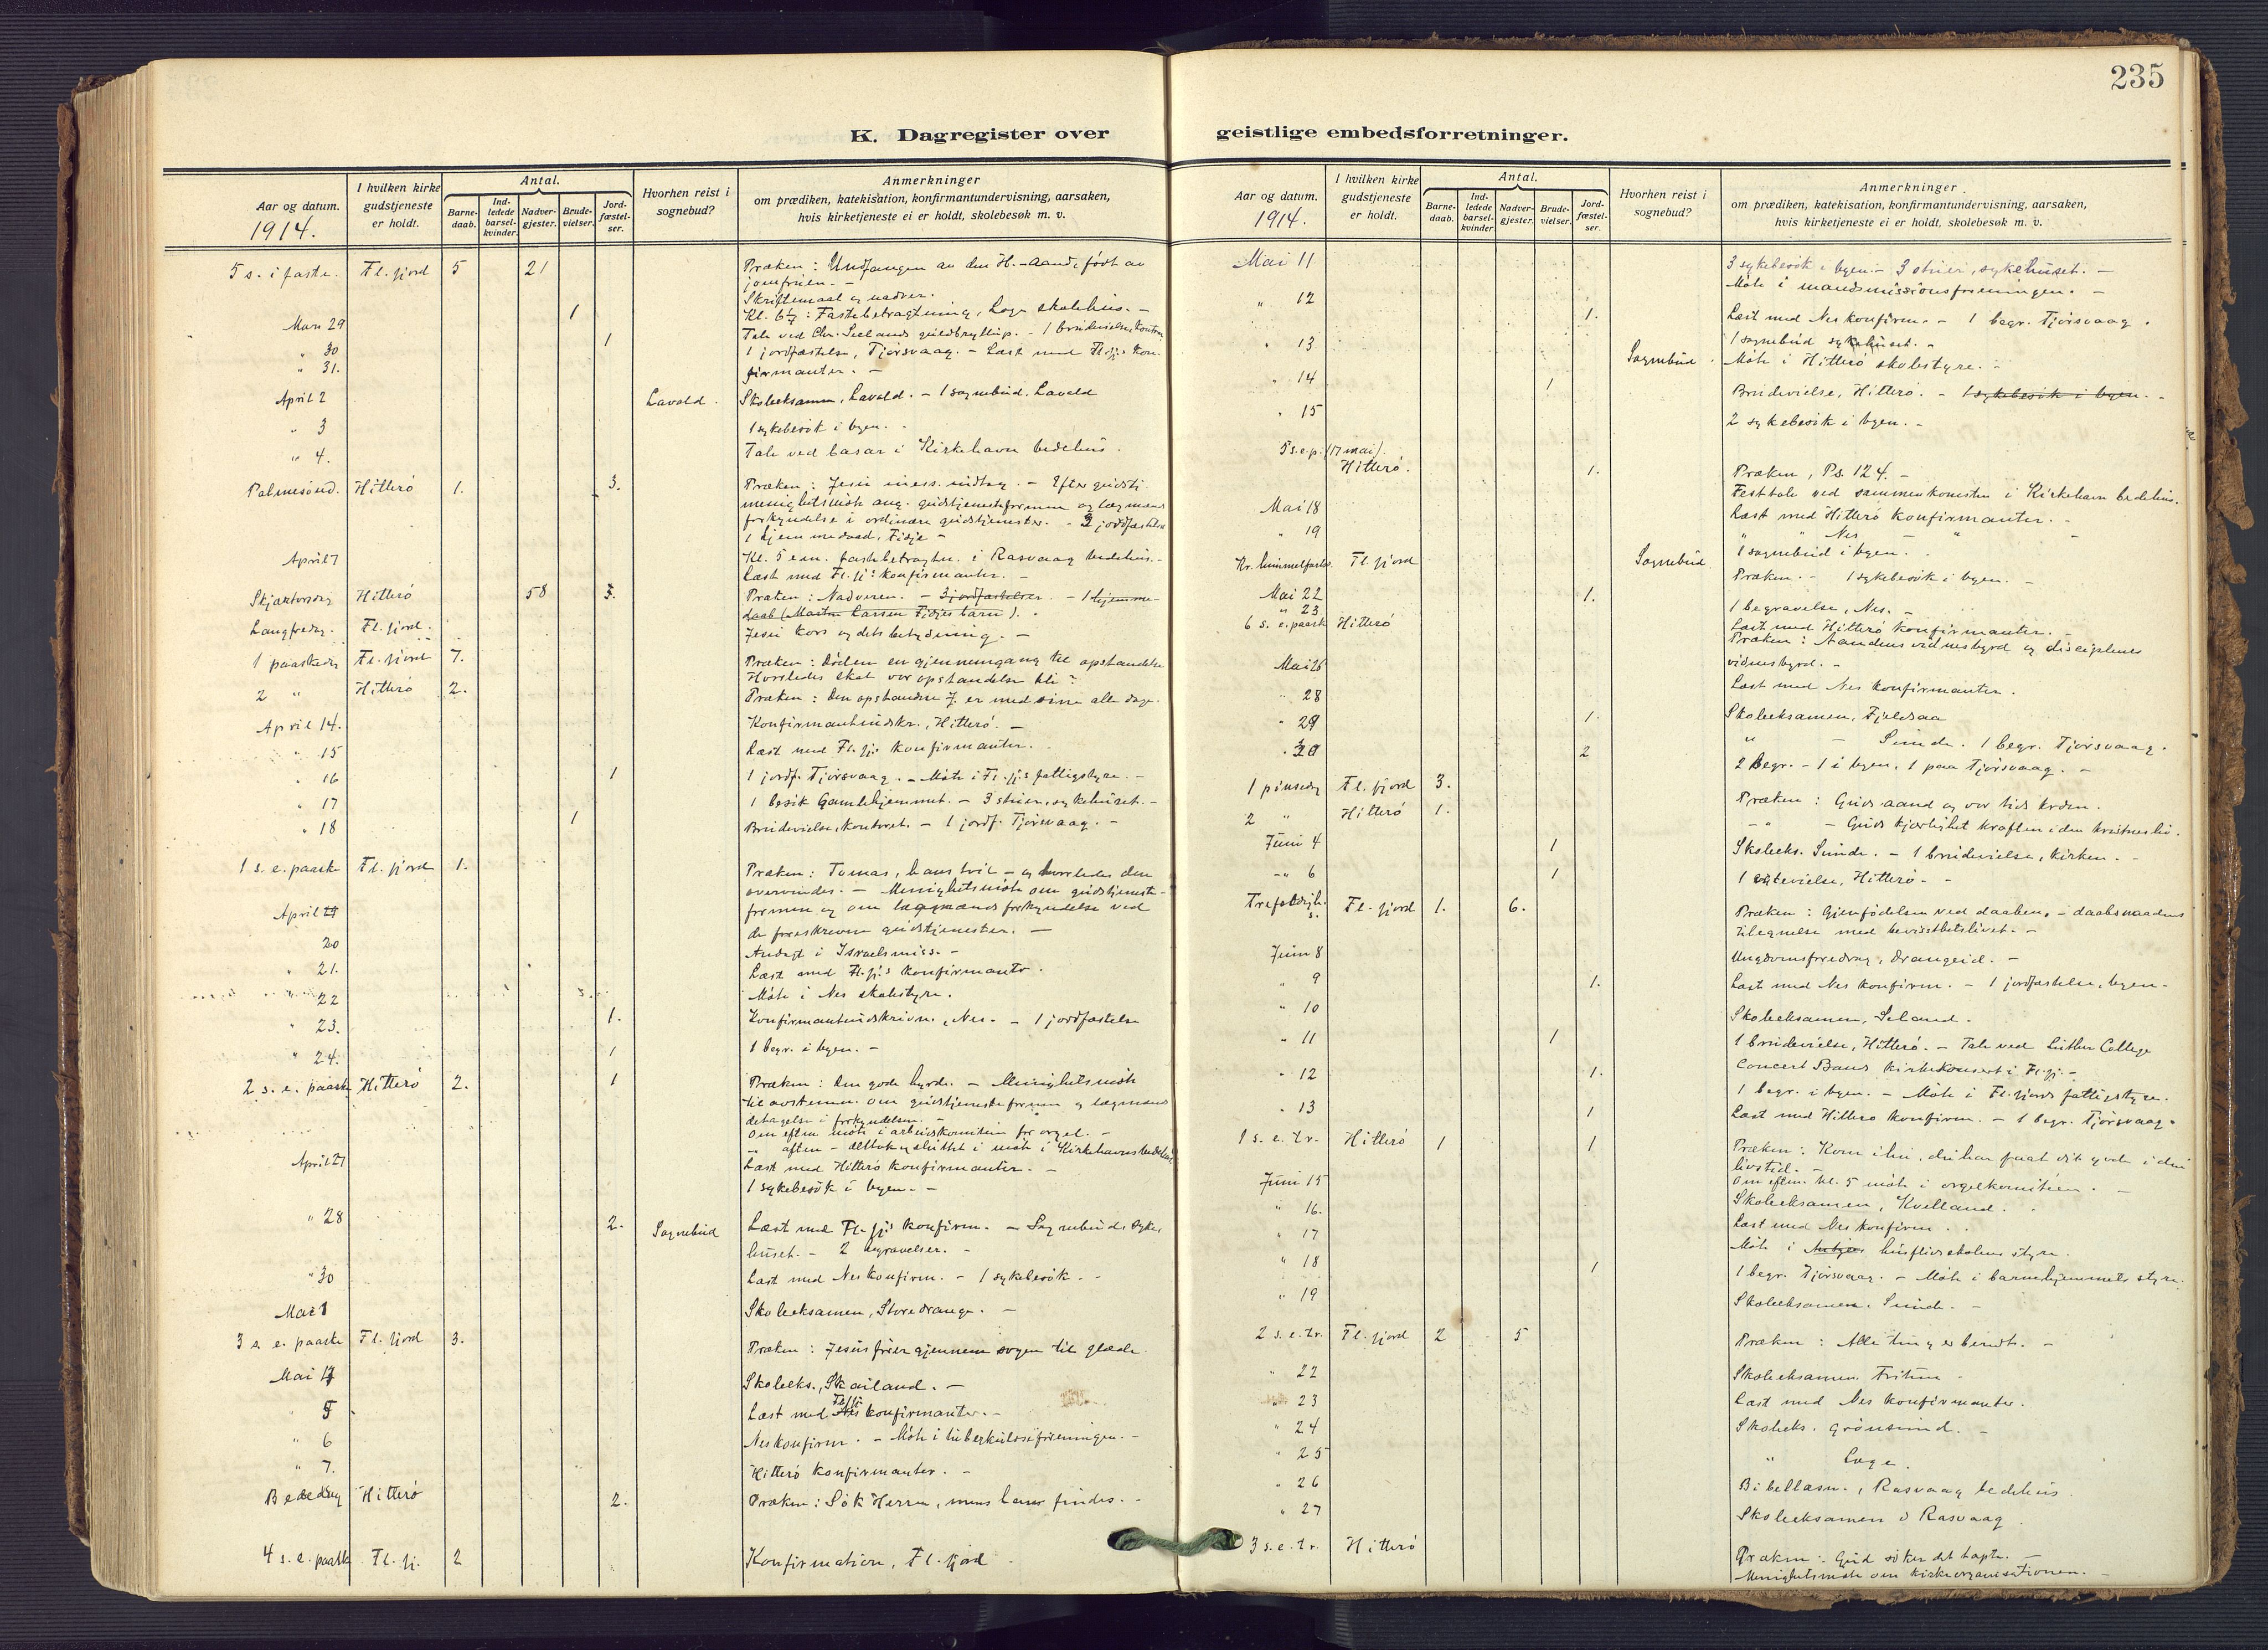 235
K. Dagregister over geistlige embedsforretninger.
Aar og datum. 1914.
I hvilken kirke gudstjeneste er holdt.
Antal.
Barne-daab.
Ind-ledede barsel-kvinder.
Nadver-gjester.
Brude-vielser.
Jord-fæstel-ser.
Hvorhen reist i sognebud?
Anmerkninger
om prædiken, katekisation, konfirmantundervisning, aarsaken,
hvis kirketjeneste ei er holdt, skolebesøk m. v.
5 s. i faste. Fl. fjord 5 21 Præken: Undfangen av den H.-Aand, født av
jomfruen. -
Skriftemaal og nadver.
1 Kl. 6½: Fastebetragtning, Loge skolehus. -
Mars 29 Tale ved Chr. Seelands guldbryllup. - 1 brudevielse, kontoret
" 30 1 1 jordfæstelse, Tjørsvaag. - Læst med Fl.fj.s kon-
" 31. firmanter. -
April 2 Lavold. Skoleeksamen, Lavold. - 1 sognebud, Lavold
" 3 1 sykebesøk i byen. -
" 4. Tale ved basar i Kirkehavn bedehus.
Palmesønd. Hitterø 1. 3. Præken: Jesu indtog. - Efter gudstj.
menighetsmøte ang. gudstjenesteformen og lægmands
forkyndelse i ordinære gudstjenester. - 3 jordfæstelser
1 hjemmedaab, Fidje -
April 7 Kl. 5 em. fastebetragtn. i Rasvaag bedehus. -
Læst med Fl.fj.s konfirmanter. -
Skjærtorsdag Hitterø 58 3. Præken: Nadveren. - 3 jordfæstelser. - 1 hjemme
daab (Martin Larsen Fidjes barn).
Langfredag. Fl. fjord. Jesu kors og dets betydning. -
1 paaskedag Fl. fjord 7. Præken: Døden en gjennemgang til opstandelse
Hvorledes skal vor opstandelse bli?
2 " Hitterø 2. Præken: Den opstandne J. er med sine alle dage.
April 14. Konfirmantindskr., Hitterø. -
" 15 Læst med Fl.fj.s konfirmanter. -
" 16 1 1 jordf. Tjørsvaag. - Møte i Fl.fj.s fattigstyre. -
" 17 1 besøk Gamlehjemmet. - 3 stuer, sykehuset. -
" 18 1 Brudevielse, kontoret. - 1 jordf. Tjørsvaag. -
1 s. e. paaske Fl. fjord 1. Præken: Tomas, hans tvil - og hvorledes den
overvindes. - Menighetsmøte om gudstjeneste-
April formen og om lægmands forkyndelse ved
de foreskrevne gudstjenester. -
20 Andagt i Israelsmiss. -
" 21. Læst med Fl.fj.s konfirmanter.
" 22 Møte i Nes skolestyre.
" 23. 1. Konfirmantindskrivn., Nes. - 1 jordfæstelse
" 24. 1 1 begr. i byen. -
2 s. e. paaske Hitterø 2. 1 Præken: Den gode hyrde. - Menighetsmøte
til avstemn. om gudstjenesteformen og lægmands
deltagelse i forkyndelsen. -
Om efterm. møte i arbeidskomiteen for orgel. -
- " aften - deltok og sluttet i møte i Kirkehavns bedehus
April 27 Læst med Hitterø konfirmanter. -
1 sykebesøk i byen. -
" 28 2. Sognebud Læst med Fl.fj.s konfirm. - Sognebud, syke-
huset. - 2 begravelser. -
" 30 Læst med Nes konfirm. - 1 sykebesøk. -
Mai 1 Skoleeksamen, Store Drange. -
3 s. e. paaske Fl. fjord 3. Præken: Jesus fører gjennem sorgen til glæde.
Mai 4 Skoleeks., Skailand. -
" 5 Læst med Fl.fj. konfirmanter. -
" 6 Nes konfirm. - Møte i tuberkuloseforeningen. -
" 7. Hitterø konfirmanter. -
Bededag Hitterø 2. Præken: Søk Herren, mens han findes. -
4 s. e. paaske Fl. fj. 2 Konfirmation, Fl. fjord
Aar og datum. 1914.
I hvilken kirke gudstjeneste er holdt.
Antal.
Barne-daab.
Ind-ledede barsel-kvinder
Nadver-gjester.
Brude-vielser.
Jord-fæstel-ser.
Hvorhen reist i sognebud?
Anmerkninger
om prædiken, katekisation, konfirmantundervisning, aarsaken,
hvis kirketjeneste ei er holdt, skolebesøk m. v.
Mai 11 3 sykebesøk i byen. - 3 stuer, sykehuset. -
Møte i mandsmissionsforeningen. -
" 12 1. Læst med Nes konfirm. - 1 begr. Tjørsvaag.
" 13 Sognebud. 1 sognebud sykehuset. -
Møte i Hitterø skolestyre. -
" 14 1 Brudevielse, Hitterø. - 1 sykebesøk i byen. -
" 15 2 sykebesøk i byen. -
5 s. e. p. (17 mai). Hitterø. 1. Præken, Ps. 124. -
Festtale ved sammenkomsten i Kirkehavn bedehus.
Mai 18 Læst med Hitterø konfirmanter. -
" 19 " " Nes " -
Sognebud. 1 sognebud i byen.
Kr. himmelfartsd. Fl. fjord Præken. - 1 sykebesøk i byen. -
Mai 22 1. 1 begravelse, Nes. -
" 23 Læst med Hitterø konfirmanter. -
6 s. e. paaske Hitterø Præken: Aandens vidnesbyrd og disciplenes
vidnesbyrd. -
Mai 26 Læst med Nes konfirmanter.
" 28 Skoleeksamen, Fjeldsaa
" 29 1. " - Sunde. 1 begr. Tjørsvaag.
" 30 2 2 begr. - 1 i byen, 1 paa Tjørsvaag. -
1 pinsedag Fl. fjord 3. Præken: Guds aand og vor tids krav.
2 " Hitterø 1. - " - Guds kjærlighet kraften i den kristnes liv.
Juni 4 1 Skoleeks. Sunde. - 1 brudevielse, kirken. -
- " 6 1 1 egtevielse, Hitterø. -
Trefoldigh. s. Fl. fjord 1. 6. Præken: Gjenfødelsen ved daaben, - daabsnaadens
tilegnelse med bevissthetslivet. -
Juni 8 Ungdomsforedrag, Drangeid. -
" 9 1. Læst med Nes konfirm. - 1 jordfæstelse, byen. -
" 10 Skoleeksamen, Seland.
" 11 1 1 brudevielse, Hitterø. - Tale ved Luther College
Concert Bands kirkekonsert i Fl.fj. -
" 12 1. 1 begr. i byen. - Møte i Fl.fjords fattigstyre.
" 13 1 Læst med Hitterø konfirm. - 1 begr. Tjørsvaag.
1 s. e. tr. Hitterø 1 1 Præken: Kom ihu, du har faat dit gode i din
livstid. -
Om efterm. kl. 5 møte i orgelkomiteen. -
Juni 15 Skoleeksamen, Kvelland.
" 16. Læst med Nes konfirm.
" 17 Møte i husflidsskolens styre.
" 18 1 1 begr. Tjørsvaag. - Møte i barnehjemmets styre.
" 19 Skoleeksamen. Sunde. -
2 s. e. tr. Fl. fjord 2 5 Præken: Alle ting er beredt. -
" 22 Skoleeksamen
" 23 Læst med Nes konfirmanter.
" 24 Skoleeks. Grønsund. -
" 25 " Loge.
" 26 Bibellæsn., Rasvaag bedehus.
" 27 Skoleeksamen i Rasvaag
3 s. e. tr. Hitterø Præken: Gud søker det tapte. -
Menighetsmøte om kirkeorganisationen. -